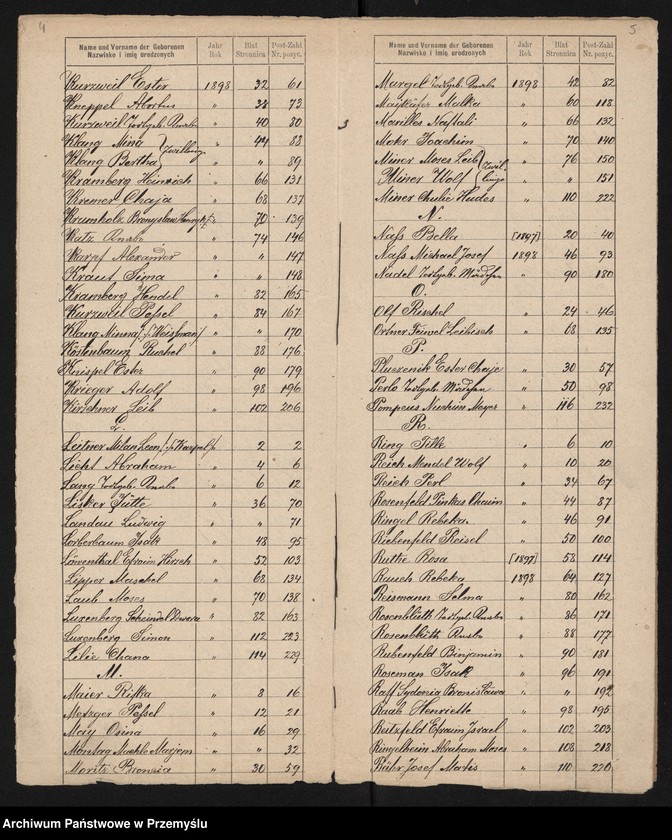 4
Name und Vorname der Geborenen Jahr Blat Post-Zahl
Nazwisko i imię urodzonych Rok Stronnica Nr. pozyc.
Kurzweil Ester 1898 32 61
Kneppel Abrahm " 38 73
Kurzweil " 40 80
Klang Mina " 44 88
Klang Bertha Zwillinge " " 89
Kramberg Heinrich " 66 131
Kremer Chaja " 68 137
Krumholz Bronysław Henryk " 70 139
Katz " 74 146
Karpf Alexander " " 147
Kraut Sima " " 148
Kramberg Hendel " 82 165
Kurzweil Pessel " 84 167
Klang Minna (Weissman) " " 170
Köstenbaum Ruchel " 88 176
Knispel Ester " 90 179
Krieger Adolf " 98 196
Kirschner Leib " 102 206
L.
Leitner Milan Leon " 2 2
Licht Abraham " 4 6
Lang " 6 12
Lisker Jütte " 36 70
Landau Ludwig " " 71
Lorberbaum Isak " 48 95
Löwenthal Efraim Hirsch " 52 103
Lipper Maschel " 68 134
Laub Moses " 70 138
Luxenberg Scheindel " 82 163
Luxenberg Simon " 112 223
Lilie Chana " 114 229
M.
Maier Rifka " 8 16
Metzger Pessel " 12 21
May Osina " 16 29
Montag Machle Marjem " " 32
Moritz Bronzia " 30 59
5
Name und Vorname der Geborenen Jahr Blat Post-Zahl
Nazwisko i imię urodzonych Rok Stronnica Nr. pozyc.
Margel 1898 42 82
Malka " 60 118
Marilles Naftali " 66 132
Mohr Joachim " 70 140
Miner Moses Leib " 76 150
Miner Wolf Zwillinge " " 151
Miner Chulie Hudes " 110 222
N.
Nass Bella [1897] 20 40
Nass Michael Josef 1898 46 93
Nadel " 90 180
O.
Olf Rischel " 24 46
Ortner Feimel Leibisch " 68 135
P.
Pluczenik Ester Chaje " 30 57
Perlo " 50 98
Pompeus Nuchim Mayer " 116 232
R.
Ring Tille " 6 10
Reich Mendel Wolf " 10 20
Reich Perl " 34 67
Rosenfeld Pinkas Chaim " 44 87
Ringel Rebeka " 46 91
Rielenfeld Reisel " 50 100
Rosa [1897] 58 114
Rauch Rebeka 1898 64 127
Reismann Selma " 80 162
Rosenblüth " 86 171
Rosenblüth " 88 177
Rubenfeld Binjamin " 90 181
Roseman Isak " 96 191
Raff Sydonia Bronisława " " 192
Raab Henriette " 98 195
Reitzfeld Efraim Israel " 102 203
Ringelheim Abraham Moses " 108 218
Josef " 110 220
Archiwum Państwowe w Przemyślu